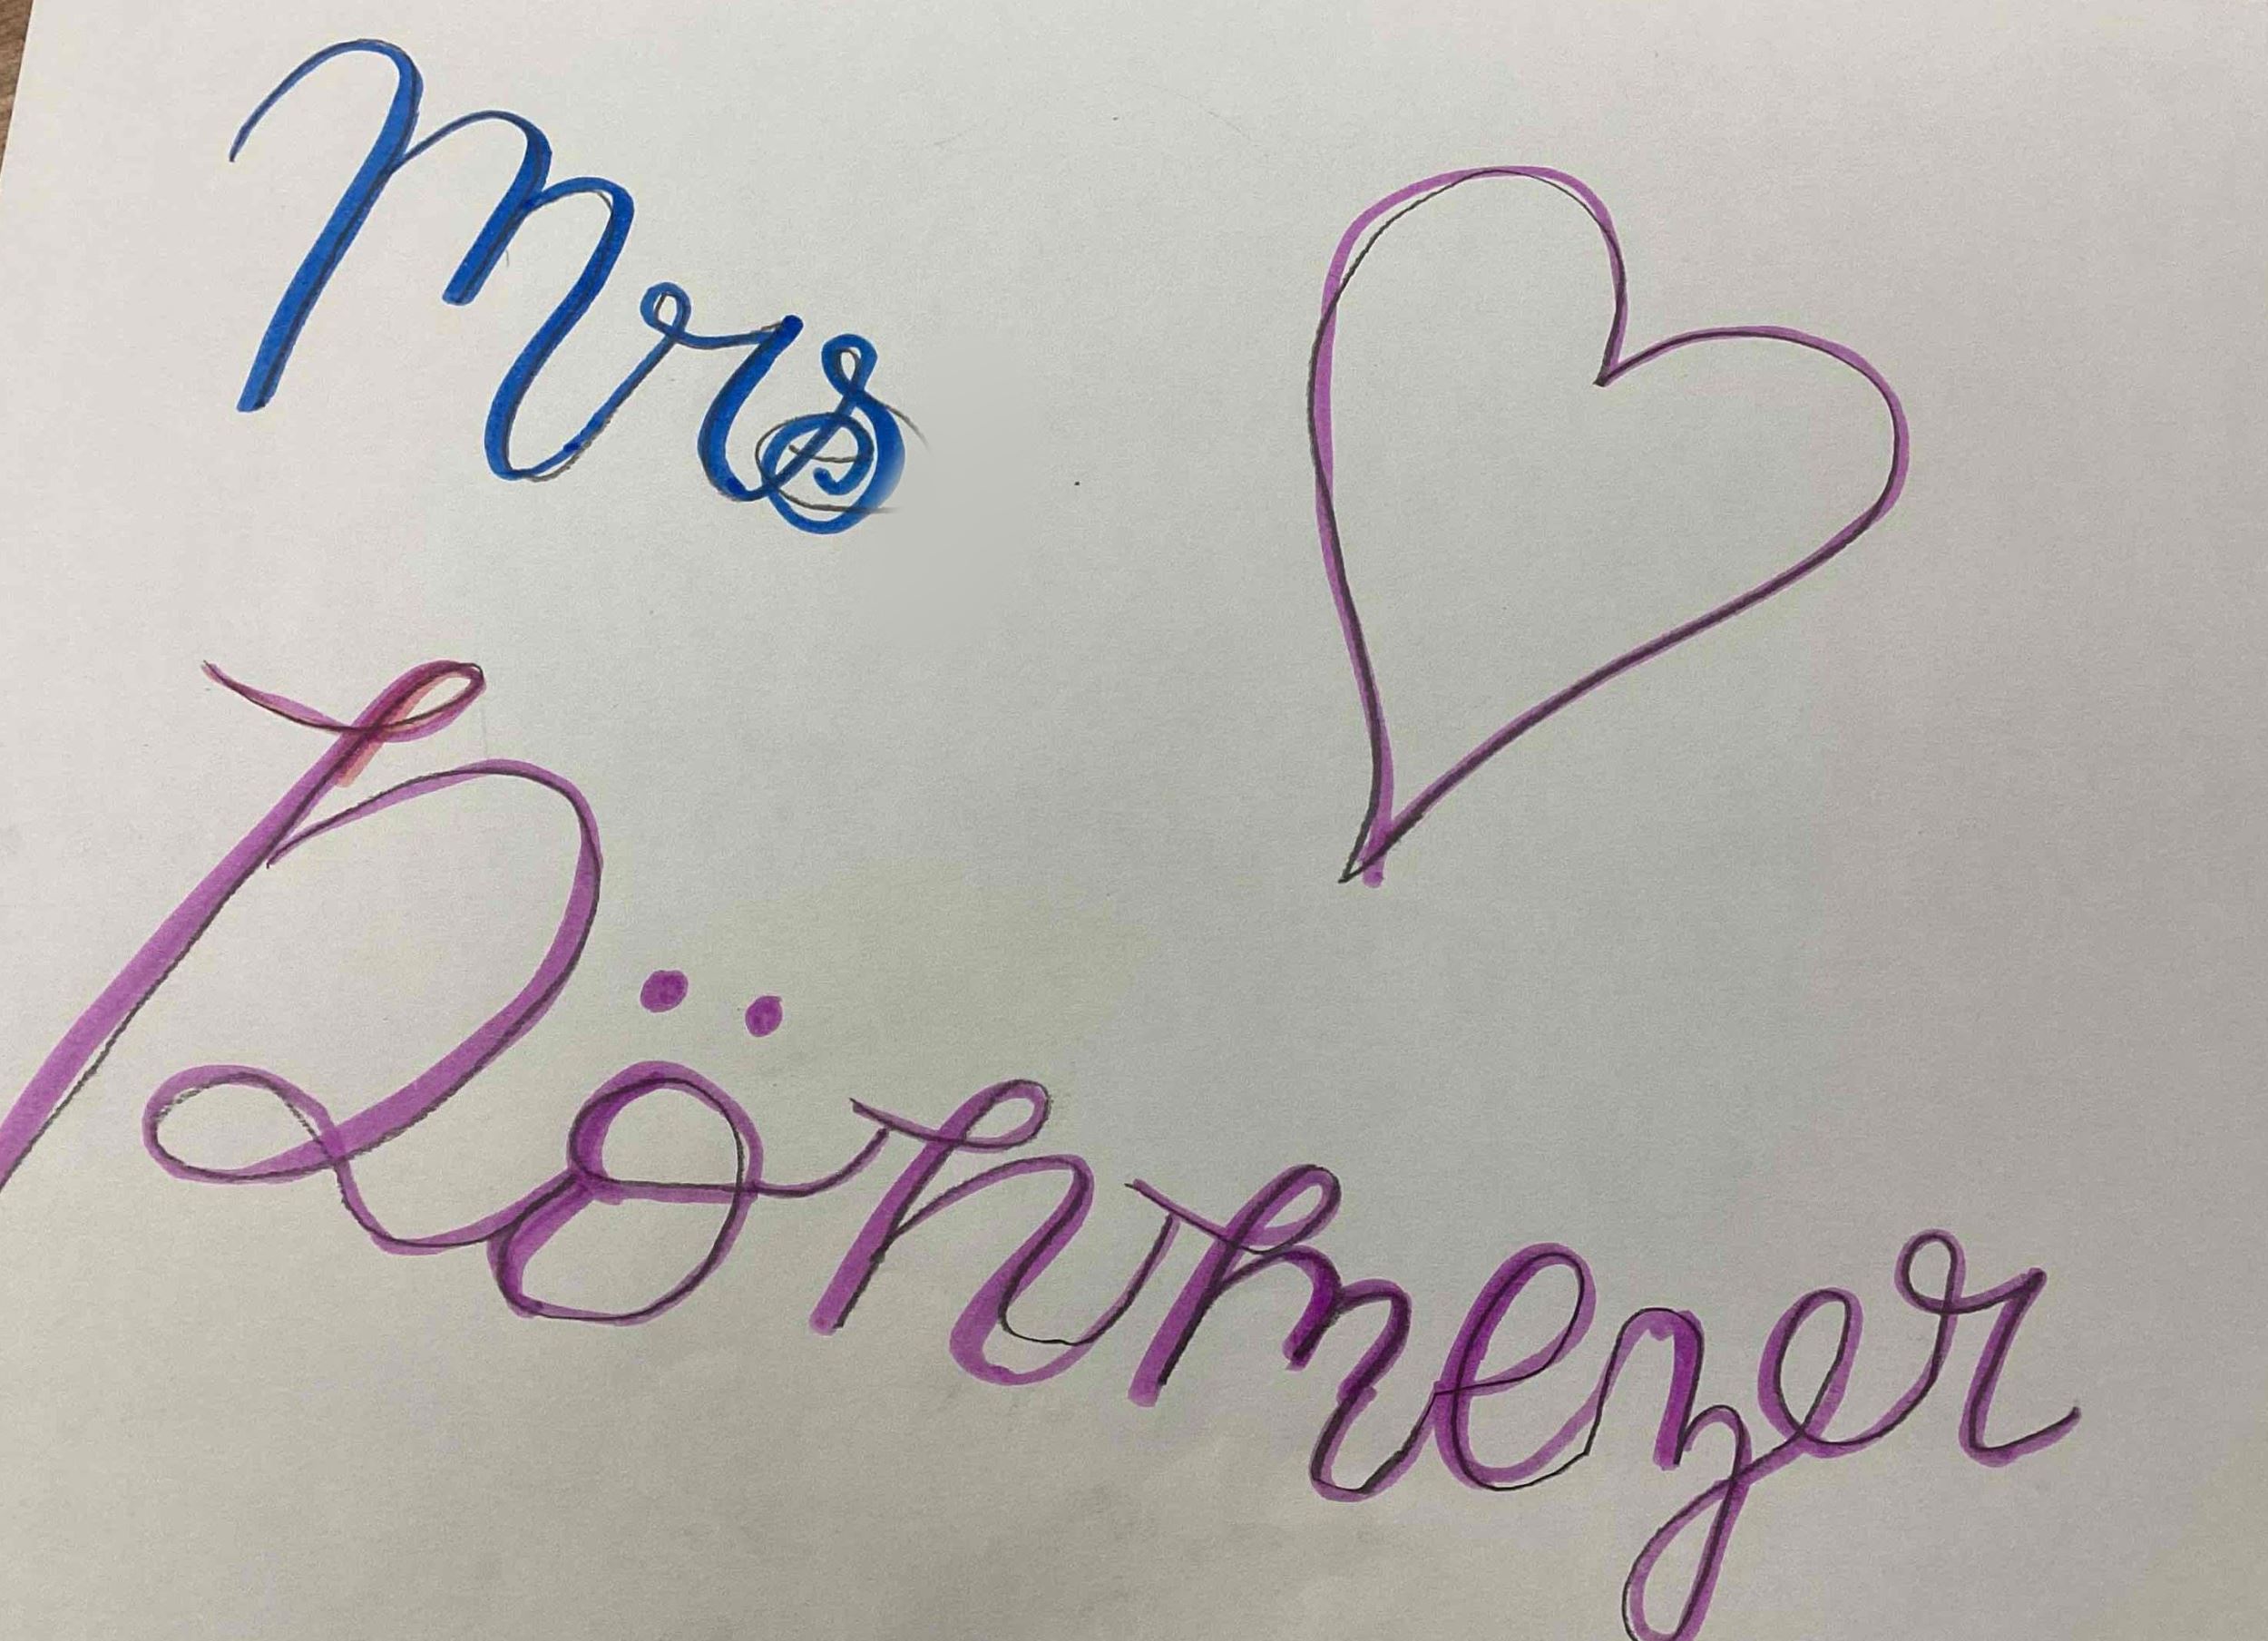 Mrs
Dönmezer